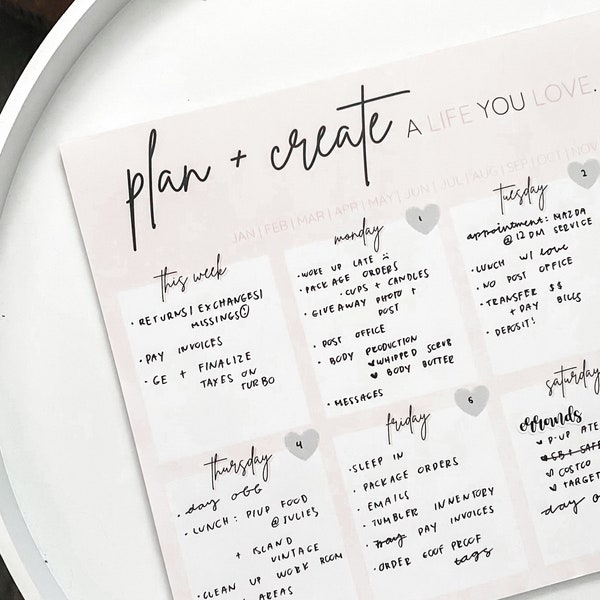 plan + create A LIFE YOU LOVE.
JAN | FEB | MAR | APR | MAY | JUN | JUL | AUG | SEP | OCT | NOV
this week
• RETURNS | EXCHANGES |
MISSINGS
• PAY INVOICES
• GE + FINALIZE
TAXES ON
TURBO
monday
1
• WOKE UP LATE
• PACKAGE ORDERS
• CUPS + CANDLES
• GIVEAWAY PHOTO +
POST
• POST OFFICE
• BODY PRODUCTION
WHIPPED SCRUB
BODY BUTTER
• MESSAGES
tuesday
2
appointment: MAZDA
@ 12 DM SERVICE
• LUNCH W/ love
• NO POST OFFICE
• TRANSFER $$
+ DAY BILLS
• DEPOSIT!
thursday
4
• day off
• LUNCH: P|UP FOOD
@JULIE'S
+ ISLAND
VINTAGE
• CLEAN UP WORK ROOM
AREAS
friday
5
• SLEEP IN
• PACKAGE ORDERS
• EMAILS
• TUMBLER INVENTORY
• PAY INVOICES
• ORDER GOOF PROOF
tags
saturday
errounds
P-UP ATE
COSTCO
TARGET
day o